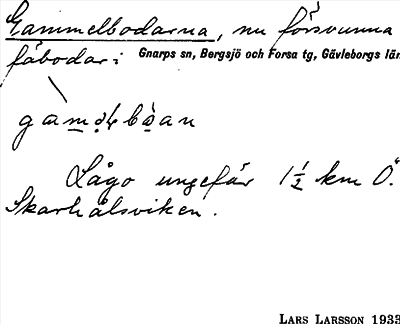 Gammelbodarna, nu försvunna
fäbodar:
Gnarps sn, Bergsjö och Forsa tg, Gävleborgs län
Lågo ungefär 1½ km Ö.
Skarhålsviken.
LARS LARSSON 1933